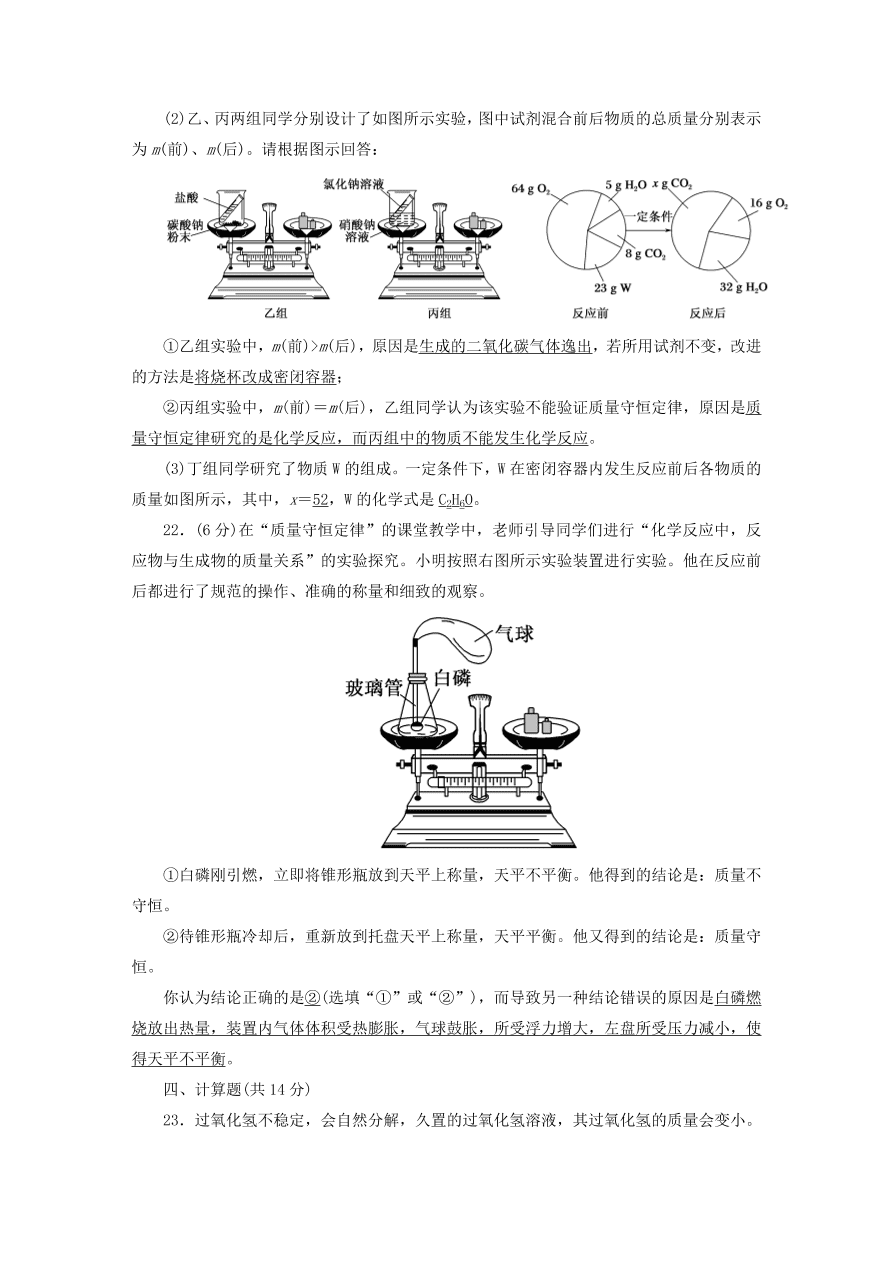 (2)乙、丙两组同学分别设计了如图所示实验，图中试剂混合前后物质的总质量分别表示
为 m(前)、m(后)。请根据图示回答：
盐酸
碳酸钠
粉末
乙组
氯化钠溶液
硝酸钠
溶液
丙组
64 g O₂
5 g H₂O
8 g CO₂
23 g W
反应前
一定条件
x g CO₂
16 g O₂
32 g H₂O
反应后
①乙组实验中，m(前)>m(后)，原因是生成的二氧化碳气体逸出，若所用试剂不变，改进
的方法是将烧杯改成密闭容器；
②丙组实验中，m(前)＝m(后)，乙组同学认为该实验不能验证质量守恒定律，原因是质
量守恒定律研究的是化学反应，而丙组中的物质不能发生化学反应。
(3)丁组同学研究了物质 W 的组成。一定条件下，W 在密闭容器内发生反应前后各物质的
质量如图所示，其中，x＝52，W 的化学式是 C₂H₆O。
22．(6 分)在“质量守恒定律”的课堂教学中，老师引导同学们进行“化学反应中，反
应物与生成物的质量关系”的实验探究。小明按照右图所示实验装置进行实验。他在反应前
后都进行了规范的操作、准确的称量和细致的观察。
气球
玻璃管
白磷
①白磷刚引燃，立即将锥形瓶放到天平上称量，天平不平衡。他得到的结论是：质量不
守恒。
②待锥形瓶冷却后，重新放到托盘天平上称量，天平平衡。他又得到的结论是：质量守
恒。
你认为结论正确的是②(选填“①”或“②”)，而导致另一种结论错误的原因是白磷燃
烧放出热量，装置内气体体积受热膨胀，气球鼓胀，所受浮力增大，左盘所受压力减小，使
得天平不平衡。
四、计算题(共 14 分)
23．过氧化氢不稳定，会自然分解，久置的过氧化氢溶液，其过氧化氢的质量会变小。